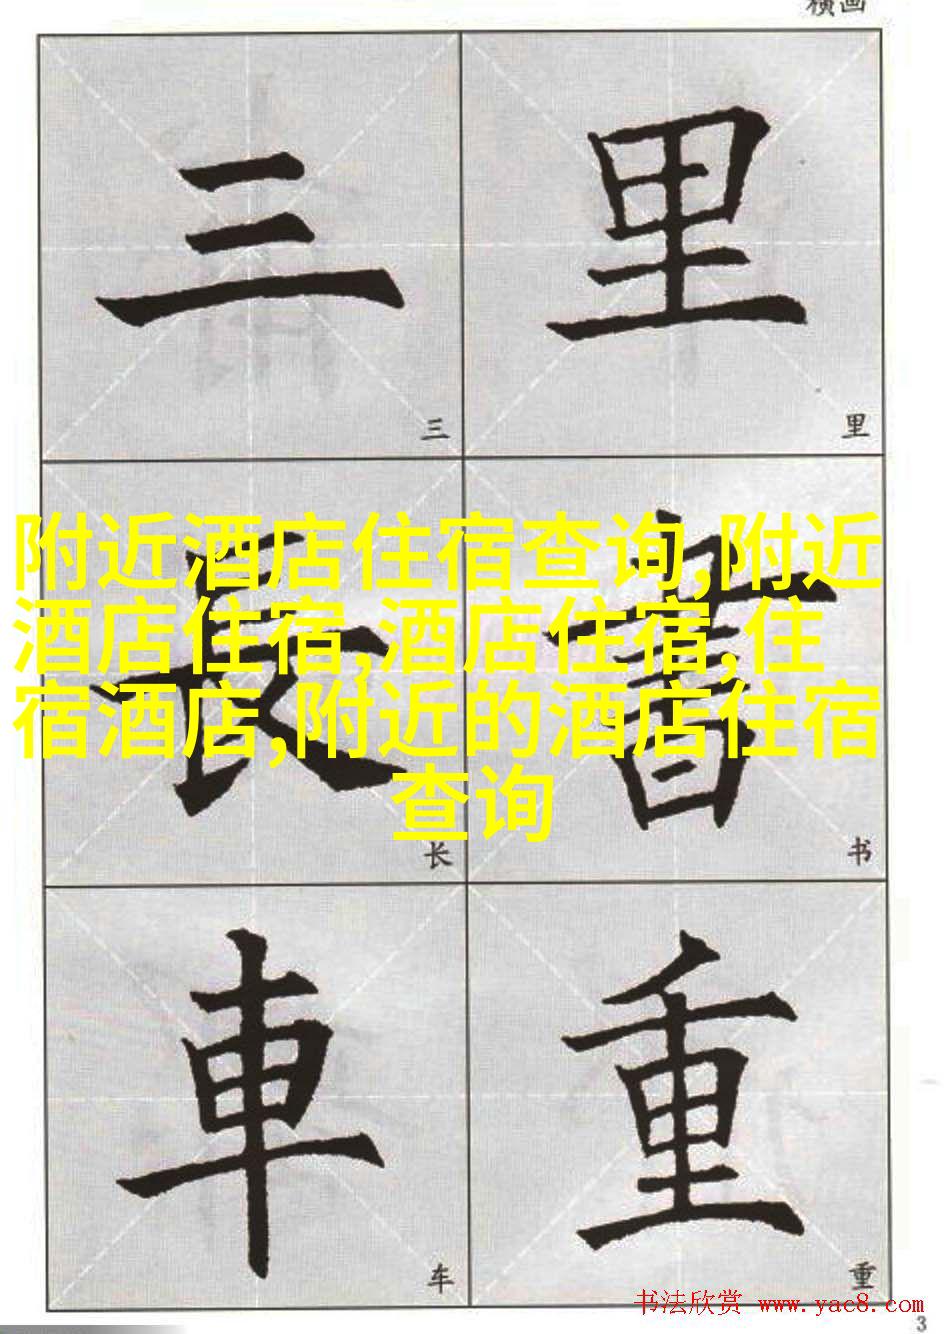 横画
三 里
三 里
附近酒店住宿查询,附近
酒店住宿,酒店住宿,住
宿酒店,附近的酒店住宿
查询
長 書
长 书
車 重
车 重
书法欣赏 www.yac8.com
3